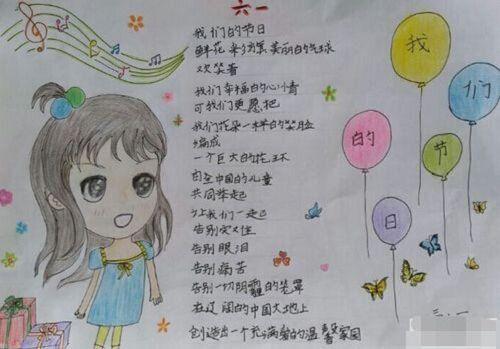 六一
我们的节日
鲜花 彩缤 美丽的气球
欢笑着
我们幸福的心情
可我们更愿把
我们花朵一样的笑脸
编成
一个巨大的花环
由全中国的儿童
共同举起
让我们一起
告别灾难
告别眼泪
告别痛苦
告别一切阴霾的笼罩
在辽阔的中国大地上
创造出一个充满爱的温馨家园
我
们
的
节
日
三.一